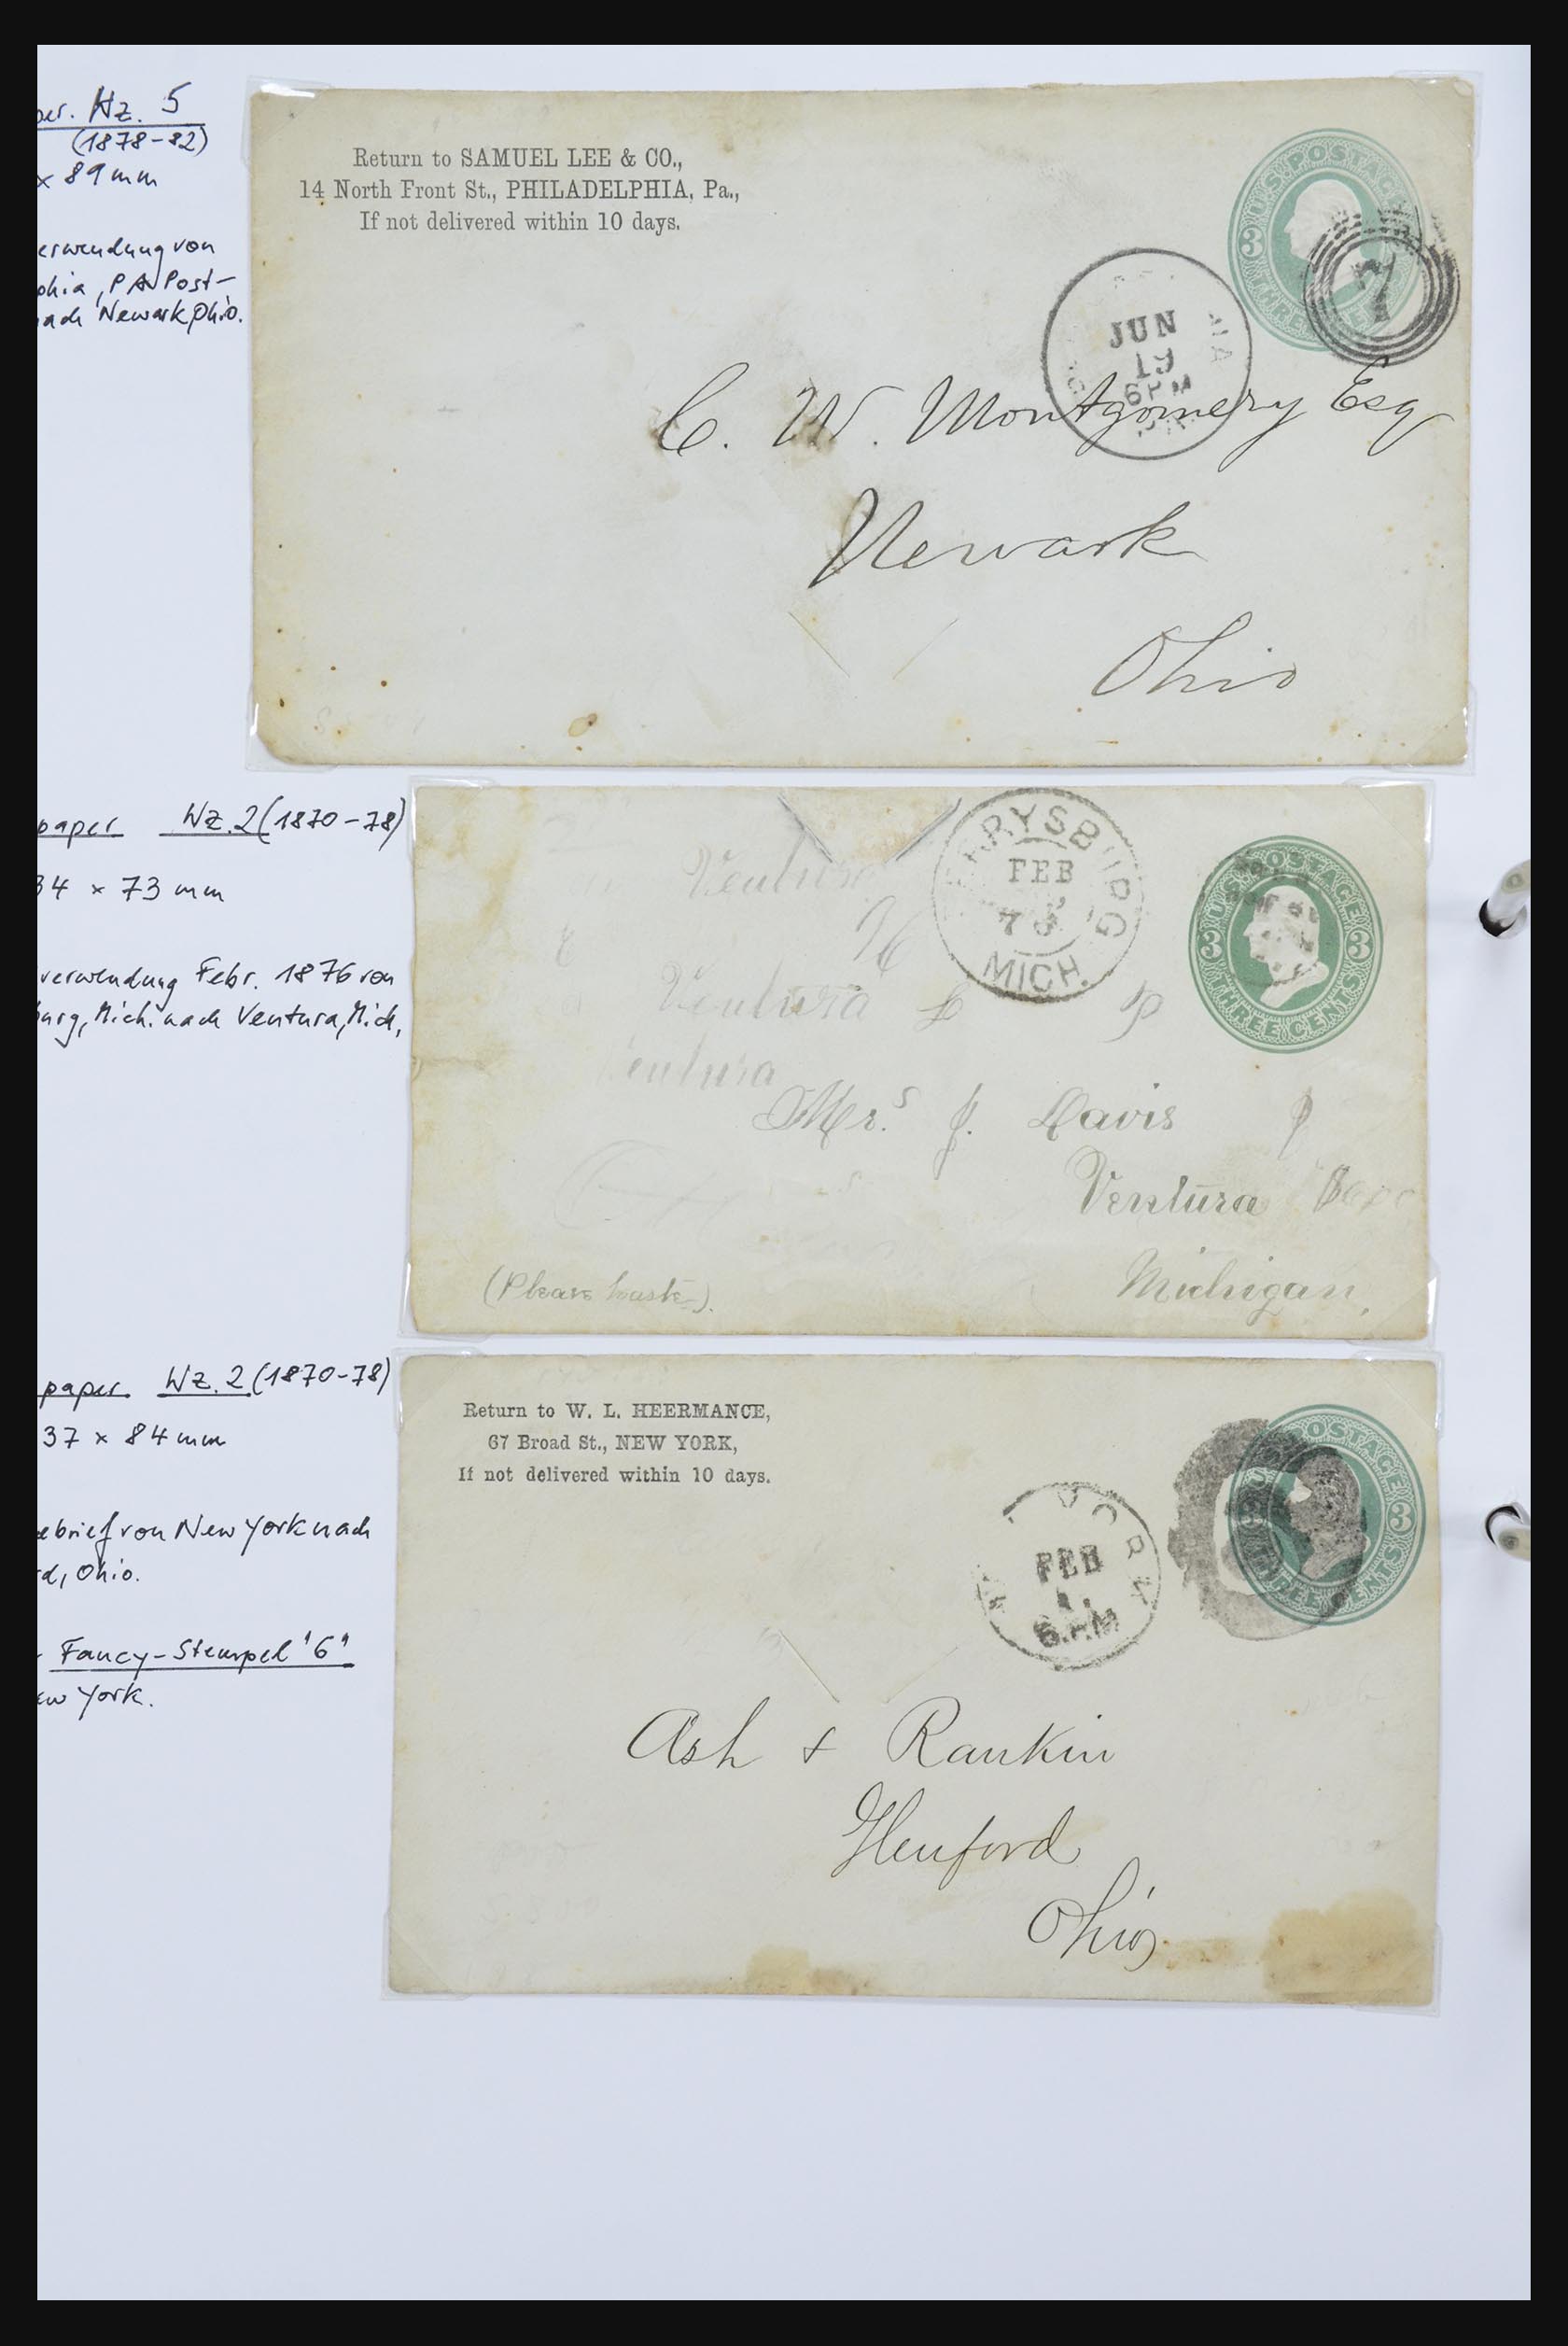 Hz. 5
(1878-82)
x 89 mm
erwendung von
phia, PA Post-
nach Newark, Ohio.
Return to SAMUEL LEE & CO.,
14 North Front St., PHILADELPHIA, Pa.,
If not delivered within 10 days.
U.S. POSTAGE
3
THREE
7
JUN
19
6 PM
C. W. Montgomery Esq
Newark
Ohio
paper Wz. 2 (1870-78)
34 x 73 mm
verwendung Febr. 1876 von
burg, Mich. nach Ventura, Mich,
Ventura
Ventura
entura
RRYSBURG
FEB
MICH.
U.S. POSTAGE
3 3
THREE CENTS
Mrs. J. Davis
Ventura
Michigan,
(Please haste).
paper Wz. 2 (1870-78)
37 x 84 mm
ebrief von New York nach
rd, Ohio.
- Fancy-Stempel "6"
ew York.
Return to W. L. HEERMANCE,
67 Broad St., NEW YORK,
If not delivered within 10 days.
YORK
FEB
POSTAGE
3
THREE CENTS
Ash & Rankin
Glenford
Ohio